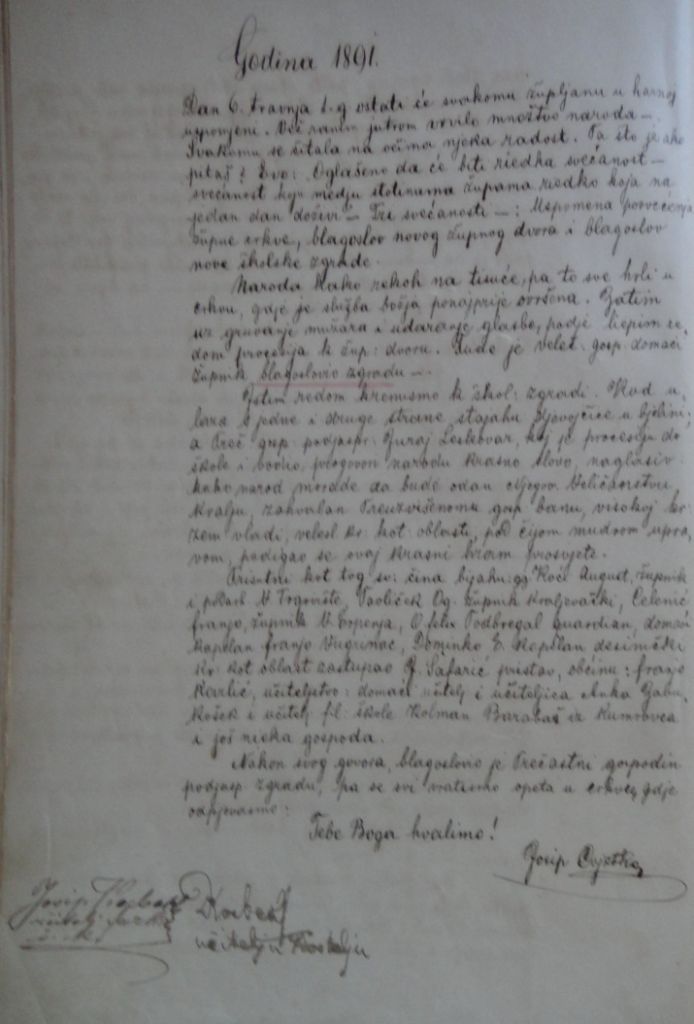 Godina 1891.
Dan 6. travnja t. g ostati će svakomu župljanu u harnoj
uspomeni. Već ranim jutrom vrvilo množtvo naroda —.
Svakomu se čitala na očima njeka radost. Ta što je ako
pitaš? Evo: Oglašeno da će biti riedka svečanost —
svečanost koju medju stotinama župama riedko koja na
jedan dan doživi — Tri svečanosti —: Uspomena posvećenja
župne crkve, blagoslov novog župnog dvora i blagoslov
nove školske zgrade.
Naroda kako rekoh na tisuće, pa to sve hrli u
crkvu, gdje je služba božja ponajprije ovršena. Zatim
uz gruvanje mužara i udaranje glasbe, podje liepim re-
dom procesija k žup: dvoru. Tude je velet. gosp. domaći
župnik blagoslovio zgradu —.
Istim redom krenusmo k škol: zgradi. Kod u-
laza s jedne i druge strane stajahu djevojčice u bjelini,
a Preč. gosp. podjaspr. Juraj Leskovar, koj je procesiju do
škole i vodio, progovori narodu krasno slovo, naglasiv
kako narod morade da bude odan Njegovu Veličanstvu
kralju, zahvalan Preuzvišenomu gosp banu, visokoj kr.
zem vladi, velesl. kr. kot. oblasti, pod čijom mudrom upra-
vom, podigao se ovaj krasni hram prosvjete.
Prisutni kot tog sv: čina bijahu: gg Koči August, župnik
i V. Trgovište, Pavliček Og. župnik kraljevački, Čelenić
franjo, župnik V. Erpenja, O. felix Podbregal guardian, domaći
kapelan franjo Vugrinac, Dominko E. Kapelan desinićki
kr. kot oblast zastupao Safarić pristav, občinu: franjo
Karlić, učiteljstvo: domaći učitelj i učiteljica Anka Gabu,
košek i učitelj fil. škole Kolman Barabaš iz Kumrovca
i još nieka gospoda.
Nakon svog govora, blagoslovio je Prečastni gospodin
podjasp zgradu, pa se svi vratismo opeta u crkvu, gdje
odpjevasmo:
Tebe Boga hvalimo!
Josip Cvjetko
Josip
učitelj u Kostelju